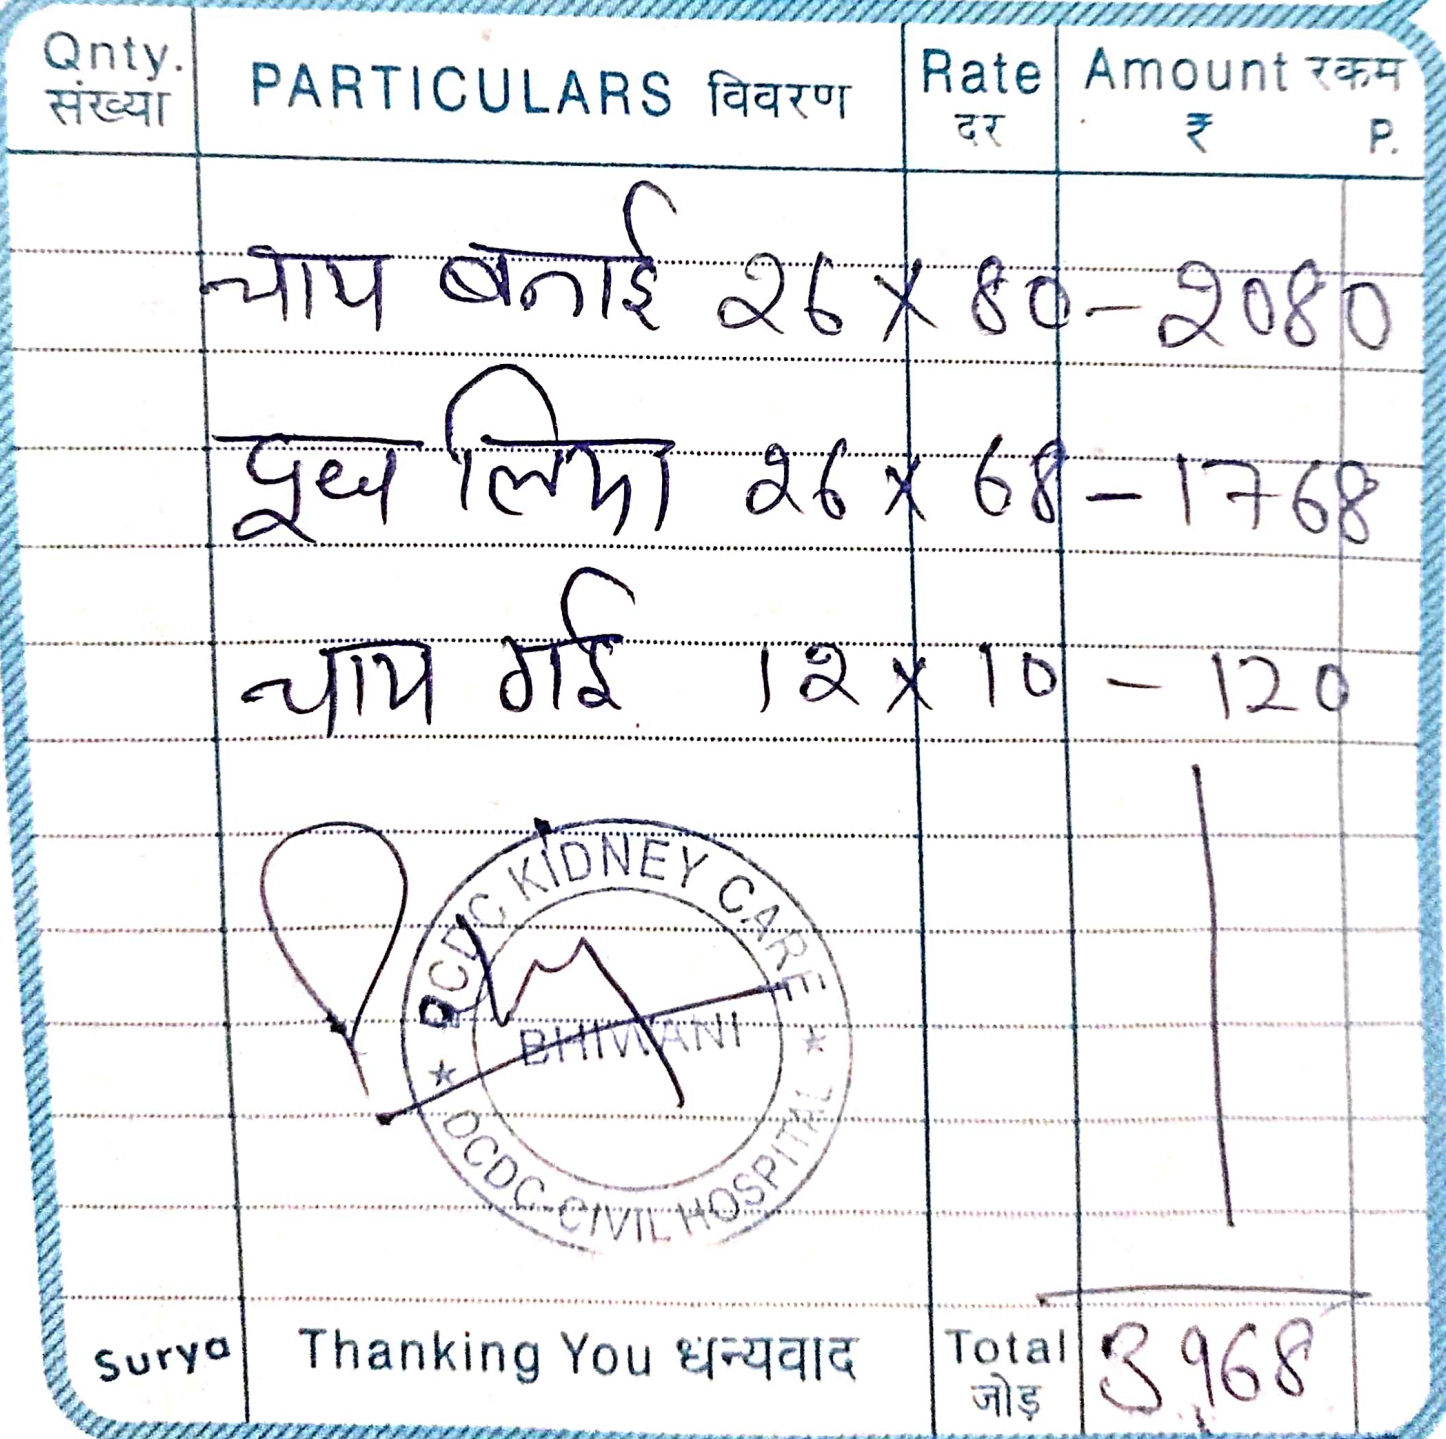 Qnty. PARTICULARS विवरण Rate Amount रकम
संख्या दर ₹ P.
चाय बनाई 26 × 80 - 2080
दूध लिया 26 × 68 - 1768
चाय गई 12 × 10 - 120
DCDC KIDNEY CARE
BHIWANI
DCDC-CIVIL HOSPITAL
Surya Thanking You धन्यवाद Total 3968
जोड़